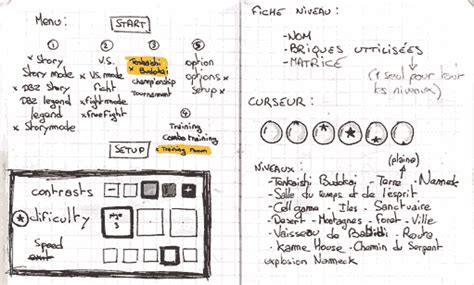 Menu:
START
① ② ③ ⑤
x Story
Story mode
x DBZ Story
DBZ legend
legend
x Storymode
V.S.
x V.S. mode
fight
x fight mode
x Free Fight
Tenkaichi
x Budokai
championship
Tournement
option
options x
Setup x
④
Training
Combo training
x Training Room
SETUP
contrasts - +
dificulty
Speed
exit
FICHE NIVEAU:
- NOM
- BRIQUES UTTILISÉES
- MATRICE
(1 seul pour tout
les niveaux)
CURSEUR:
(plaine)
NIVEAUX:
- Tenkaishi Budokai - Terre - Nameck
- Salle du temps et de l'esprit
- Cell game - Iles - Sanctuaire
- Desert - Montagnes - Foret - Ville
- Vaisseau de Babidi - Route
- Kame House - Chemin du Serpent
explosion Nameck